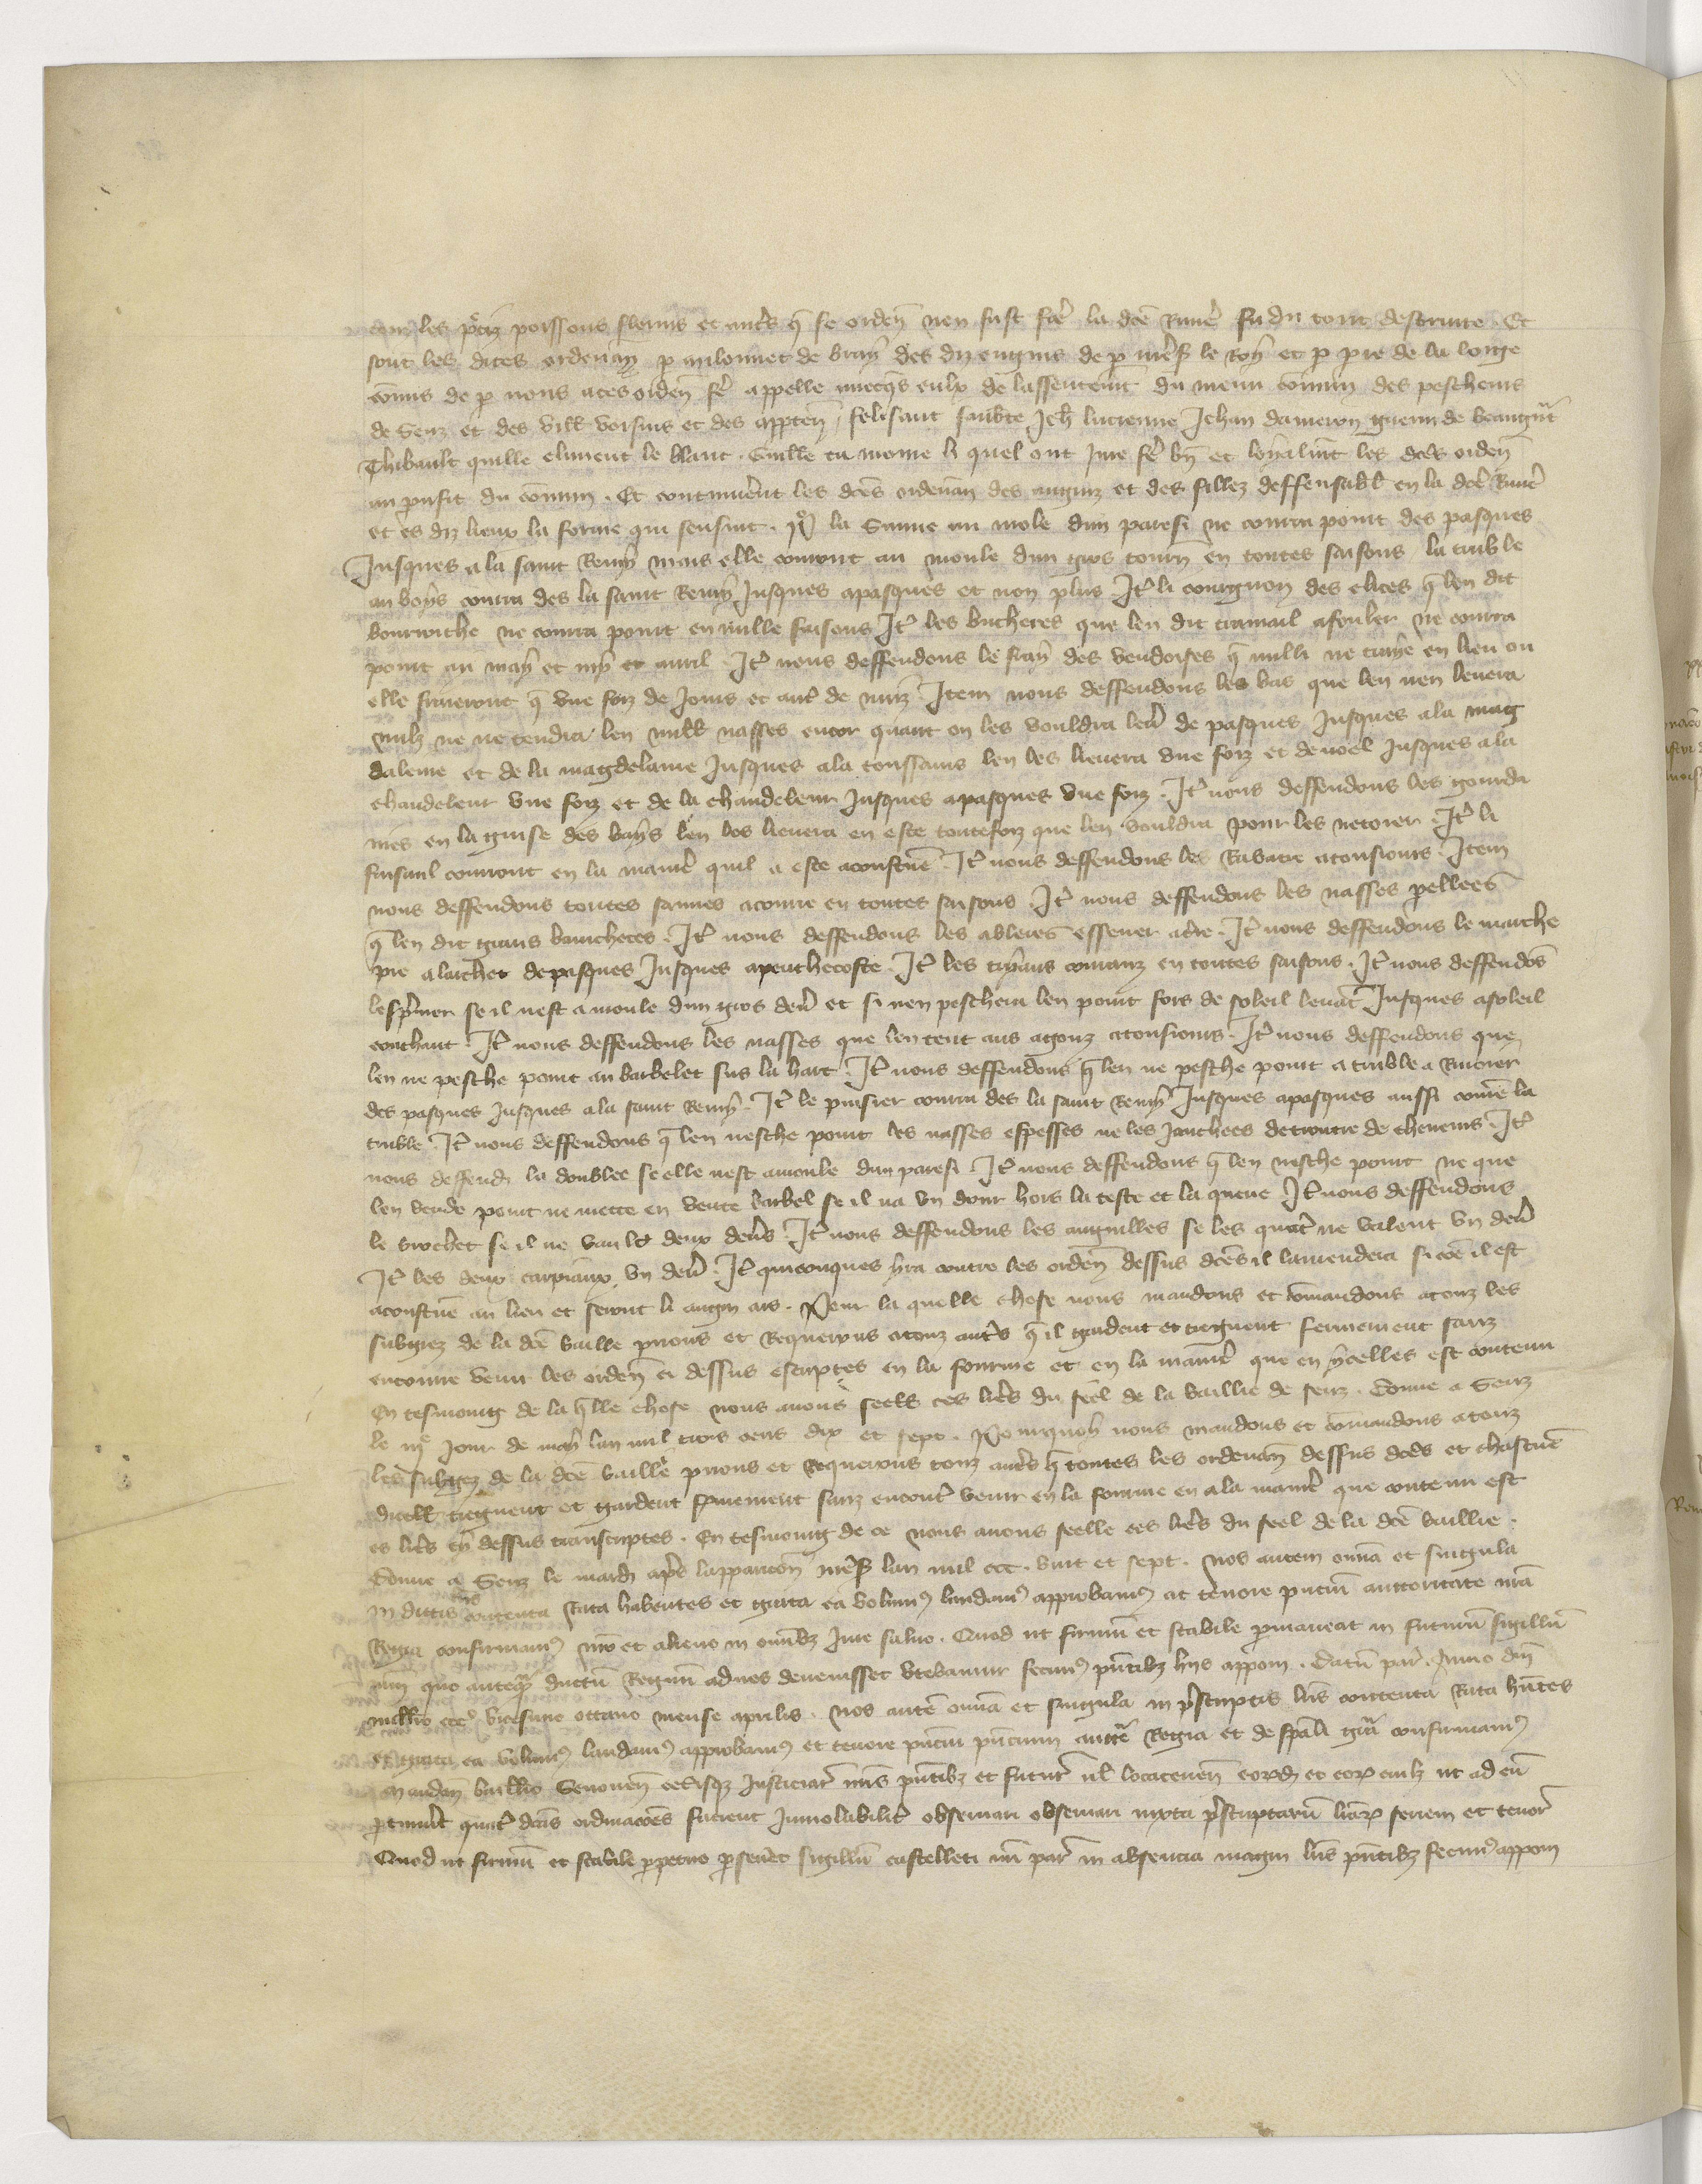 les poissons flouins et autrs q̄ se ordeñ nen fust fce la dce Rivie fu du tout destruite . Et
sont les dites ordenaz p milonnet de bray des diz engins de p mess le Roy et p pre de la loige
cōmis de p nous a ces ordeñ fe appelle auecqs eulx de lassentemt du menu cōmun des pescheurs
de Senz et des vill voisins et des apparteñ felisant Jeh lucienne Jehan dameron guerin de beau
Thibault quille climent le blanc . Guille tu moine li quel ont jure fe bn et loyalmt les dces ordeñ
au prufit du cōmun . Et contenuent les dces ordenan des anginz et des fillez deffensabl en la dce Riuie
et es diz lieux la forme qui sensuit . P° la Sanne au mole dun paresi ne courra point des pasques
Jusques a la saint Remy mais elle courront au moule dun gros tourn en toutes saisons la truble
au boys courra des la saint Remy Jusques a pasques et non plus Jt li courgnon des clices q̄ len dit
bourriche ne courra point en nulle saisons Jt les bucheres que len dit tramail a fouler ne courra
point au may et my et auril . Jt nous deffendons le fray des vendoises q̄ nulli ne traye en lieu ou
elle fraieront q̄ vne foiz de jours et autre de nuiz Jtem nous deffendons les bas que len nen leuera
nulz ne ne tendra len null nasses encor quant on les vouldra leu de pasques Jusques a la mag
dalene et de la magdelaine Jusques a la toussains len les lieuera vne foiz et de noel Jusques a la
chandeleur vne foiz et de la chandeleur Jusques a pasques vne foiz . Jt nous deffendons les gourdi
nes en la guise des bays len les lieuera en este toutefoiz que len vouldra pour les netoier . Jt li
fusaul courront en la manie quil a este acoustue . Jt nous deffendons les Rabatre a tousiours . Jtem
nous deffendons toutes sannes a courre en toutes saisons . Jt nous deffendons les nasses pellees
q̄ len dit grans baucheces . Jt nous deffendons les ableres essener a dre . Jt nous deffendons le marche
pie a larcher de pasques Jusques a penthecoste . Jt les trayans couranz en toutes saisons . Jt nous deffendos
lespuier se il nest a moule dun gros deu et si nen peschera len point fors de soleil leuat Jusques a soleil
couchant . Jt nous deffendons les nasses que len tent aus agouz a tousiours . Jt nous deffendons que
len ne pesche point au barbelet sus la hart . Jt nous deffendons q̄ len ne pesche point a truble a Riuoier
des pasques Jusques a la saint Remy . Jt le puisier courra des la saint Remy Jusques a pasques aussi come la
truble . Jt nous deffendons q̄ len nesche point les nasses espesses ne les Jonchees de de cheneuis . Jt
nous deffend la doublee se elle nest a moule dun paresi . Jt nous deffendons q̄ len nesche point ne que
len vende point ne mette en vente barbel se il na vn dour hors la teste et la queue Jt nous deffendons
le brochet se il ne vault deux deus . Jt nous deffendons les anguilles se les quat ne valent vn deu
Jt les deux carpiaux vn deu . Jt quiconques yra contre les ordeñ dessus dces il lamendera si coe il est
acoustue au lieu et seront li angin ars . Pour la quelle chose nous mandons et cōmandons a touz les
subgiez de la dce baillie prions et Requerons a touz autrs q̄ il gardent et tiegnent fermement sanz
encontre venir les ordeñ ci dessus escriptes en la fourme et en la manie que en ycelles est contenu
En tesmoing de la qlle chose nous auons seele ces lres du seel de la baillie de senz . Donne a Senz
le iije jour de may lan mil trois cens dix et sept . Pourquoy nous mandons et cōmandons a touz
les subgez de la dce baillie prions et Requerons touz autrs q̄ toutes les ordenan dessus dces et chascue
dicell tiegnent et gardent fmement sanz encontr venir en la fourme en a la manie que contenu est
es lres cy dessus transcriptes . En tesmoing de ce nous auons seelle ces lres du seel de la dce baillie .
Donne a Senz le mardi apres lapparicon mess lan mil ccc . vint et sept . Nos autem omīa et singula
in dictis lris contenta Rata habentes et grata ea volum9 laudam9 approbam9 ac tenore pntiu auctoritate nra
Regia confirmam9 nro et alieno in omibz jure saluo . Quod ut firmu et stabile pmaneat in futuru sigillu
nrm quo anteq ductu Regimi ad nos deuenisset vtebamur fecim9 pntibz hijs appoñ . Datu par . Anno dni
millio ccc° vicesimo octauo mense aprilis . Nos aute omīa et singula in pscriptis lris contenta Rata hntes
et grata ea volum9 laudam9 approbam9 et tenore pnciu auctte Regia et de spali gra confirmam9
Mandan baillio Senoneñ cetisqz justiciar nris pntibz et futur ul locateneñ eord et eor cuilz ut ad eu
ptinuit quat dcas ordinacoes faciant Jnuiolabilit obseruari obseruari iuxta pscriptaru lrar seriem et tenor
Quod ut firmu et stabile ppetuo pseuet sigillu castelleti nri par in absencia magni lris pntibz fecim9 appoñ